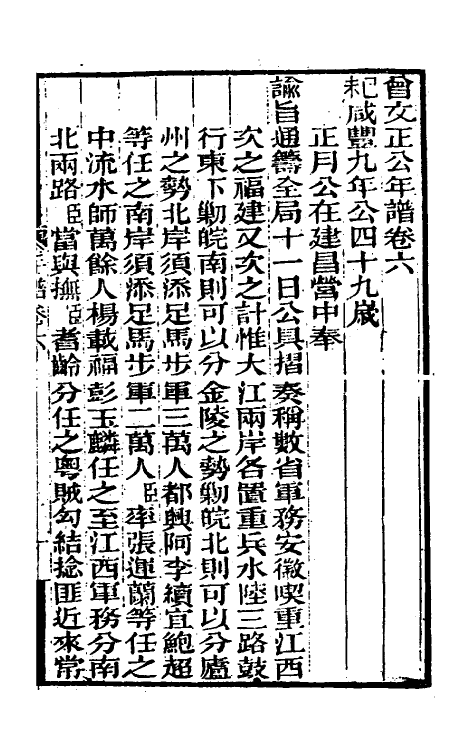 曾文正公年譜卷六
己未咸豐九年公四十九歲
正月公在建昌營中奉
諭旨通籌全局十一日公具摺奏稱數省軍務安徽喫重江西
次之福建又次之計惟大江兩岸各置重兵水陸三路鼓
行東下剿皖南則可以分金陵之勢剿皖北則可以分廬
州之勢北岸須添足馬步軍三萬人都興阿李續宜鮑超
等任之南岸須添足馬步軍二萬人臣率張運蘭等任之
中流水師萬餘人楊載福彭玉麟任之至江西軍務分南
北兩路臣當與撫臣耆齡分任之粵賊勾結捻匪近來常